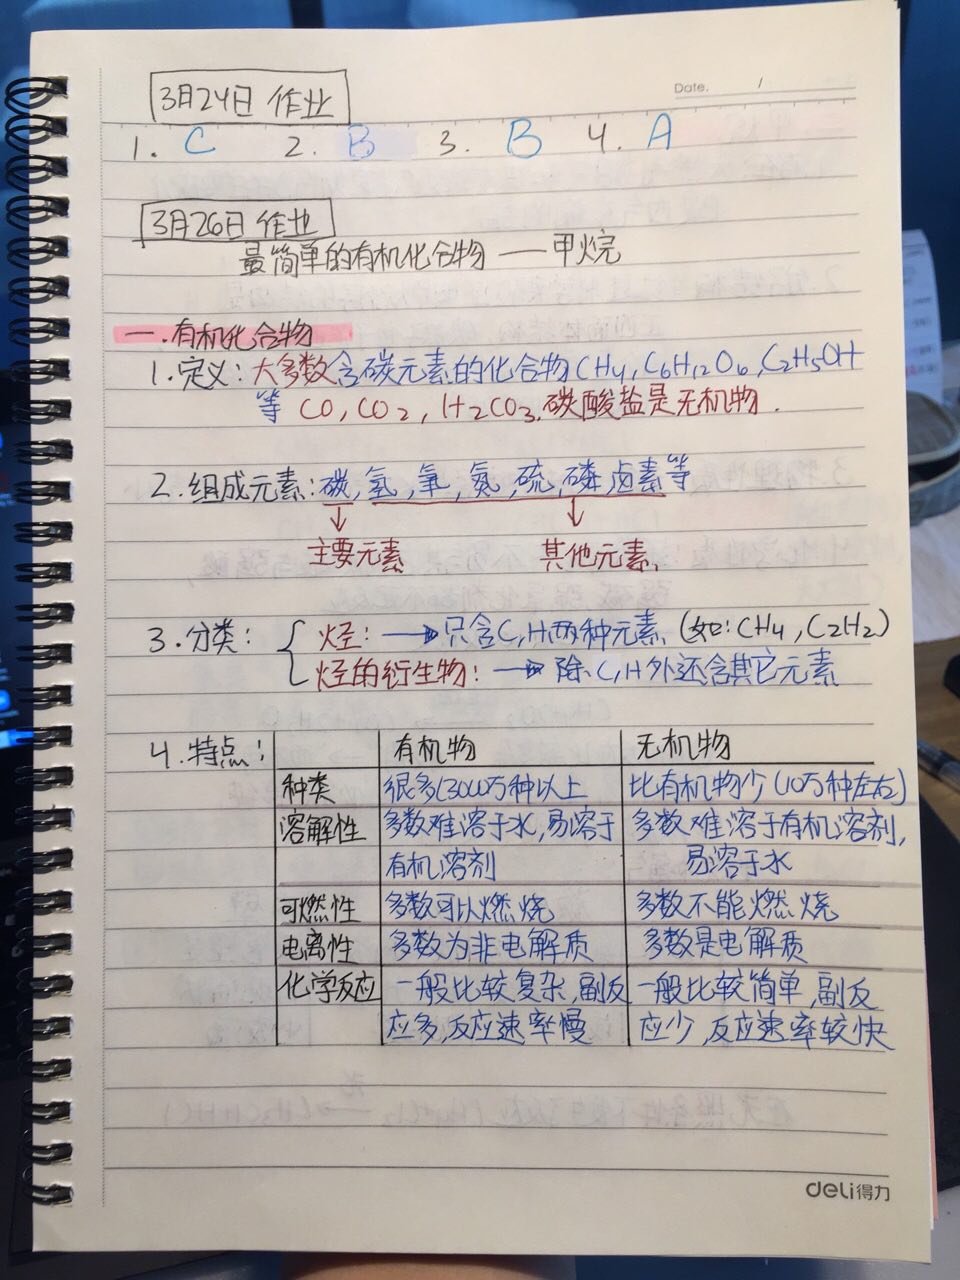 Date. /
3月24日 作业
1. C 2. B 3. B 4. A
3月26日 作业
最简单的有机化合物 —— 甲烷
一.有机化合物
1.定义: 大多数含碳元素的化合物CH4,C6H12O6,C2H5OH
等 CO, CO2, H2CO3.碳酸盐是无机物.
2.组成元素:碳,氢,氧,氮,硫,磷,卤素等
主要元素 其他元素.
3.分类: { 烃: → 只含C,H两种元素 (如: CH4, C2H2)
烃的衍生物: → 除C,H外还含其它元素
4.特点: 有机物 无机物
种类 很多(3000万种以上 比有机物少 (10万种左右)
溶解性 多数难溶于水,易溶于 多数难溶于有机溶剂,
有机溶剂 易溶于水
可燃性 多数可以燃烧 多数不能燃烧
电离性 多数为非电解质 多数是电解质
化学反应 一般比较复杂,副反 一般比较简单,副反
应多,反应速率慢 应少,反应速率较快
deli得力